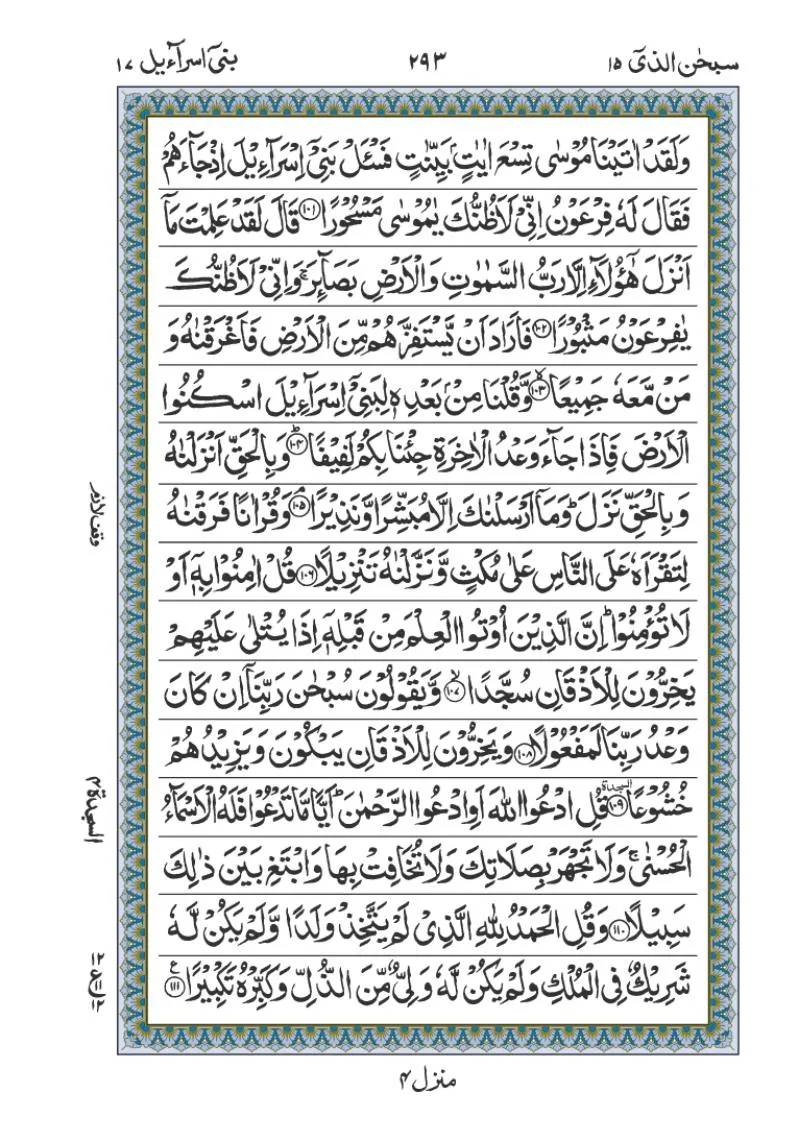 سبحٰن الذیٓ ۱۵
۲۹۳
بنیٓ اسرآءیل ۱۷
وَلَقَدْ اٰتَیْنَا مُوْسٰی تِسْعَ اٰیٰتٍۭ بَیِّنٰتٍ فَسْـَٔلْ بَنِیْۤ اِسْرَآءِیْلَ اِذْ جَآءَهُمْ
فَقَالَ لَهٗ فِرْعَوْنُ اِنِّیْ لَاَظُنُّكَ یٰمُوْسٰی مَسْحُوْرًا ۱۰۱ قَالَ لَقَدْ عَلِمْتَ مَاۤ
اَنْزَلَ هٰۤؤُلَآءِ اِلَّا رَبُّ السَّمٰوٰتِ وَالْاَرْضِ بَصَآئِرَۚ وَاِنِّیْ لَاَظُنُّكَ
یٰفِرْعَوْنُ مَثْبُوْرًا ۱۰۲ فَاَرَادَ اَنْ یَّسْتَفِزَّهُمْ مِّنَ الْاَرْضِ فَاَغْرَقْنٰهُ وَ
مَنْ مَّعَهٗ جَمِیْعًاۙ ۱۰۳ وَّقُلْنَا مِنْۢ بَعْدِهٖ لِبَنِیْۤ اِسْرَآءِیْلَ اسْكُنُوا
الْاَرْضَ فَاِذَا جَآءَ وَعْدُ الْاٰخِرَةِ جِئْنَا بِكُمْ لَفِیْفًاؕ ۱۰۴ وَبِالْحَقِّ اَنْزَلْنٰهُ
وَبِالْحَقِّ نَزَلَؕ وَمَاۤ اَرْسَلْنٰكَ اِلَّا مُبَشِّرًا وَّنَذِیْرًاۘ ۱۰۵ وَقُرْاٰنًا فَرَقْنٰهُ
لِتَقْرَاَهٗ عَلَی النَّاسِ عَلٰی مُكْثٍ وَّنَزَّلْنٰهُ تَنْزِیْلًا ۱۰۶ قُلْ اٰمِنُوْا بِهٖۤ اَوْ
لَا تُؤْمِنُوْاؕ اِنَّ الَّذِیْنَ اُوْتُوا الْعِلْمَ مِنْ قَبْلِهٖۤ اِذَا یُتْلٰی عَلَیْهِمْ
یَخِرُّوْنَ لِلْاَذْقَانِ سُجَّدًاۙ ۱۰۷ وَّیَقُوْلُوْنَ سُبْحٰنَ رَبِّنَاۤ اِنْ كَانَ
وَعْدُ رَبِّنَا لَمَفْعُوْلًا ۱۰۸ وَیَخِرُّوْنَ لِلْاَذْقَانِ یَبْكُوْنَ وَیَزِیْدُهُمْ
خُشُوْعًا السجدة ۱۰۹ قُلِ ادْعُوا اللّٰهَ اَوِ ادْعُوا الرَّحْمٰنَؕ اَیًّا مَّا تَدْعُوْا فَلَهُ الْاَسْمَآءُ
الْحُسْنٰیۚ وَلَا تَجْهَرْ بِصَلَاتِكَ وَلَا تُخَافِتْ بِهَا وَابْتَغِ بَیْنَ ذٰلِكَ
سَبِیْلًا ۱۱۰ وَقُلِ الْحَمْدُ لِلّٰهِ الَّذِیْ لَمْ یَتَّخِذْ وَلَدًا وَّلَمْ یَكُنْ لَّهٗ
شَرِیْكٌ فِی الْمُلْكِ وَلَمْ یَكُنْ لَّهٗ وَلِیٌّ مِّنَ الذُّلِّ وَكَبِّرْهُ تَكْبِیْرًا ۱۱۱ ع
وقف لازم
السجدة ۴
منزل ۴